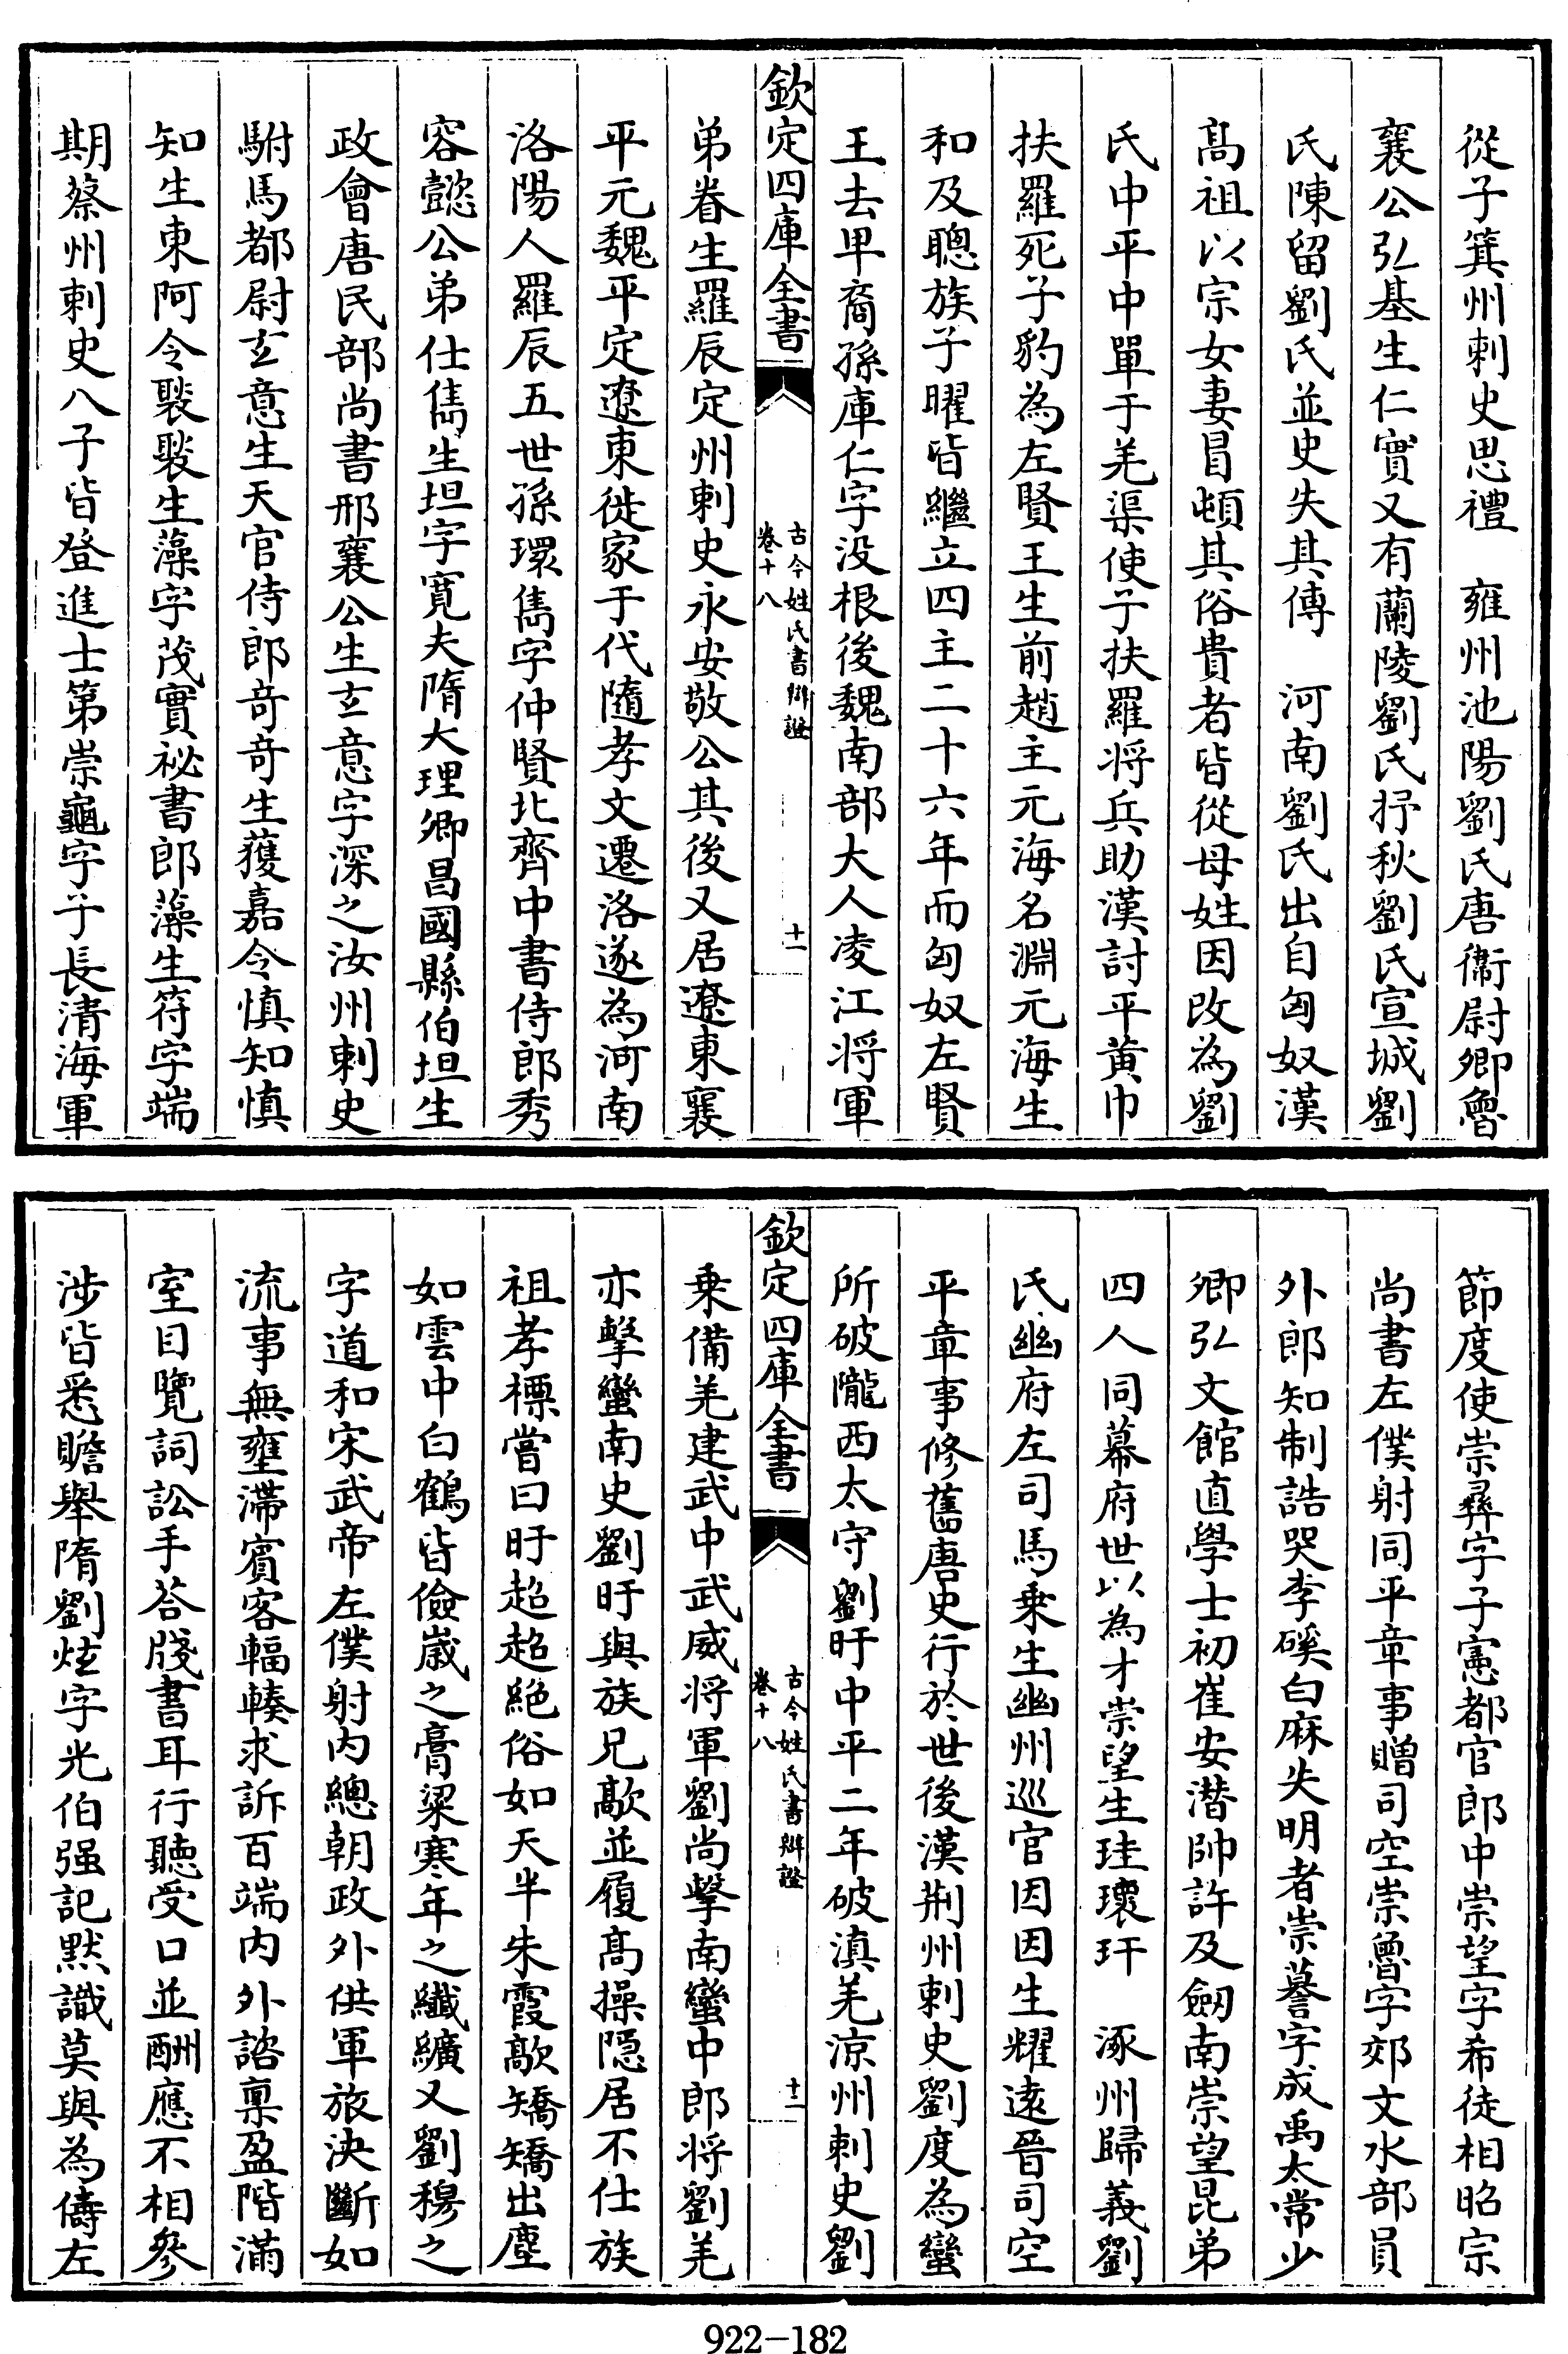 從子箕州刺史思禮　雍州池陽劉氏唐衞尉卿魯
襄公弘基生仁實又有蘭陵劉氏抒秋劉氏宣城劉
氏陳留劉氏並史失其傳　河南劉氏出自匈奴漢
髙祖以宗女妻冒頓其俗貴者皆從母姓因改為劉
氏中平中單于羌渠使子扶羅将兵助漢討平黄巾
扶羅死子豹為左賢王生前趙主元海名淵元海生
和及聰族子曜皆繼立四主二十六年而匈奴左賢
王去卑裔孫庫仁字没根後魏南部大人凌江将軍
欽定四庫全書
古今姓氏書辯證
卷十八
十一
弟眷生羅辰定州刺史永安敬公其後又居遼東襄
平元魏平定遼東徙家于代隨孝文遷洛遂為河南
洛陽人羅辰五世孫環雋字仲賢北齊中書侍郎秀
容懿公弟仕雋生坦字寛夫隋大理卿昌國縣伯坦生
政會唐民部尚書邢襄公生玄意字深之汝州刺史
駙馬都尉玄意生天官侍郎奇奇生獲嘉令慎知慎
知生東阿令褧褧生藻字茂實祕書郎藻生符字端
期蔡州刺史八子皆登進士第崇龜字子長清海軍
節度使崇彛字子憲都官郎中崇望字希徒相昭宗
尚書左僕射同平章事贈司空崇魯字郊文水部員
外郎知制誥哭李磎白麻失明者崇謩字成禹太常少
卿弘文館直學士初崔安潜帥許及劔南崇望昆弟
四人同幕府世以為才崇望生珪瓌玕　涿州歸義劉
氏幽府左司馬乗生幽州巡官因因生耀遠晉司空
平章事修舊唐史行於世後漢荆州刺史劉度為蠻
所破隴西太守劉盱中平二年破滇羌涼州刺史劉
欽定四庫全書
古今姓氏書辯證
卷十八
十二
乗備羌建武中武威将軍劉尚擊南蠻中郎将劉羌
亦擊蠻南史劉旴與族兄歊並履髙操隠居不仕族
祖孝標嘗曰旴超超絶俗如天半朱霞歊矯矯出塵
如雲中白鶴皆儉嵗之膏粱寒年之纎纊又劉穆之
字道和宋武帝左僕射内總朝政外供軍旅決斷如
流事無壅滯賓客輻輳求訴百端内外諮禀盈階滿
室目覽詞訟手荅牋書耳行聽受口並酬應不相參
涉皆悉贍舉隋劉炫字光伯强記黙識莫與為儔左
922-182